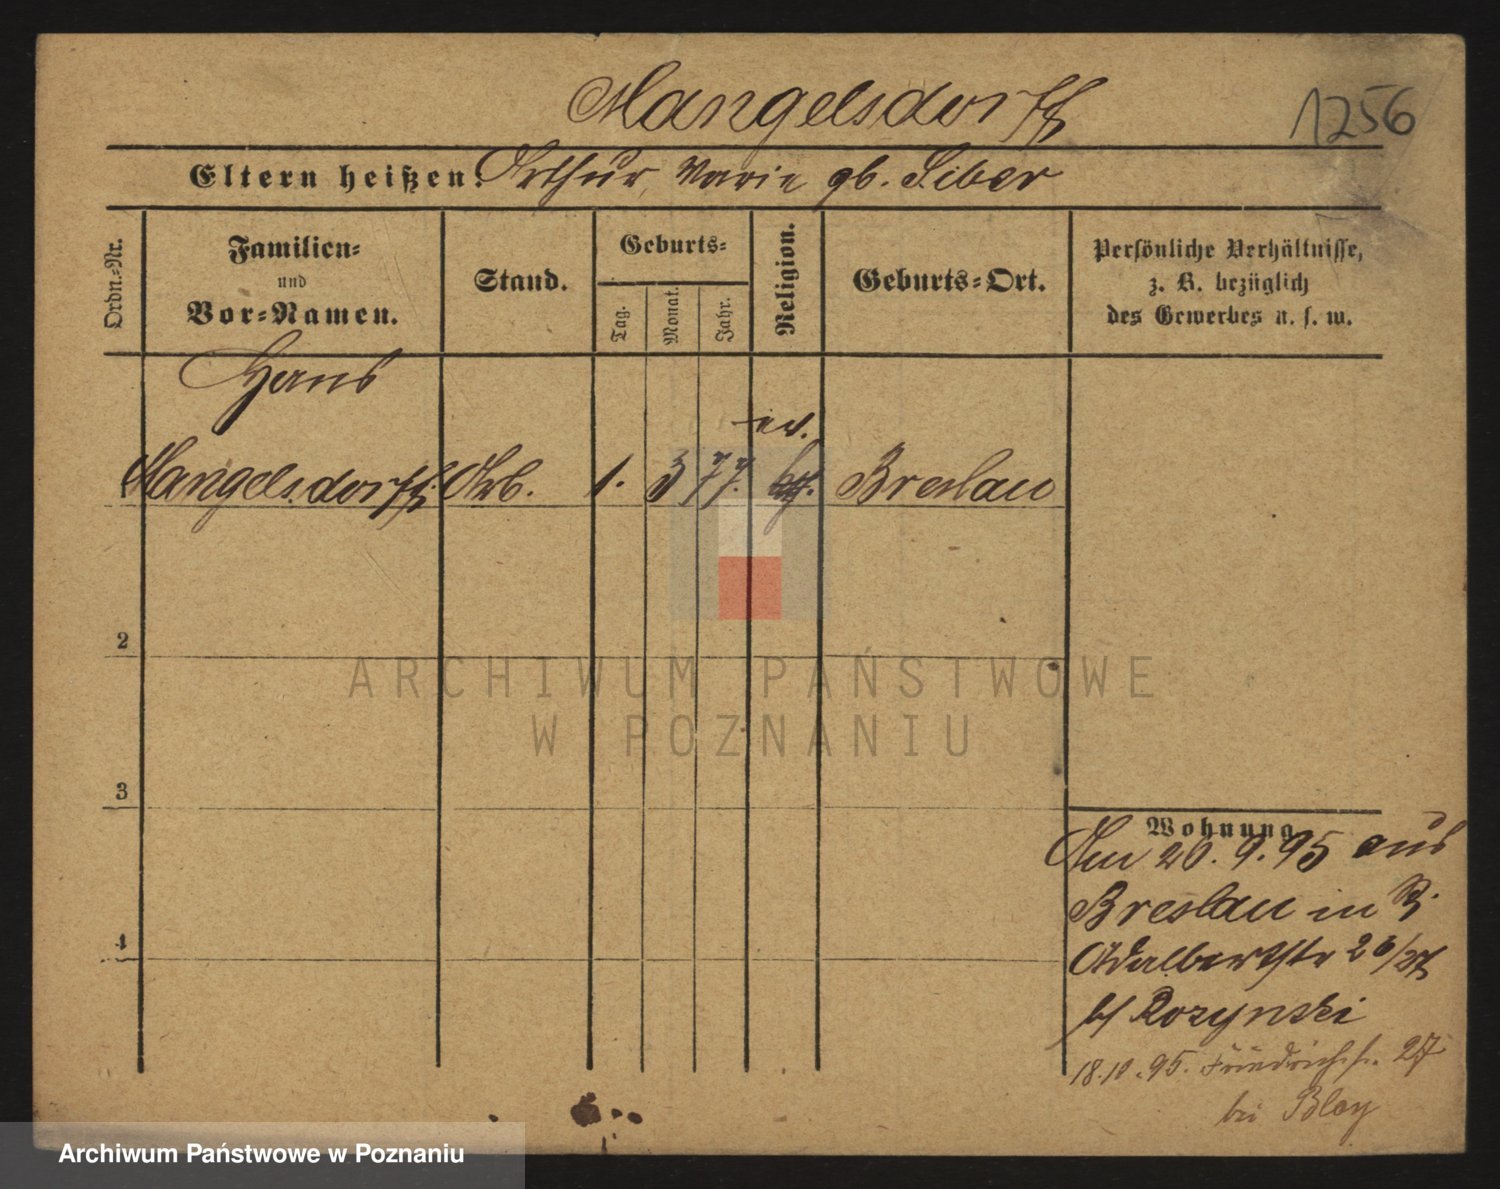 Mangelsdorff
1256
Eltern heißen: Arthur, Marie gb. Siber
Ordn.-Nr.
Familien-
und
Vor-Namen.
Stand.
Geburts-
Tag.
Monat.
Jahr.
Religion.
Geburts-Ort.
Persönliche Verhältnisse,
z. B. bezüglich
des Gewerbes u. s. w.
Hans
ev.
1 Mangelsdorff. Arb. 1. 3 77. Breslau
2
3
4
Wohnung
Am 20. 9. 95 aus
Breslau in
Adalbertstr 26/27
b/ Rozynski
18.10.95. Friedrichstr. 27
bei Bloy
ARCHIWUM PAŃSTWOWE
W POZNANIU
Archiwum Państwowe w Poznaniu